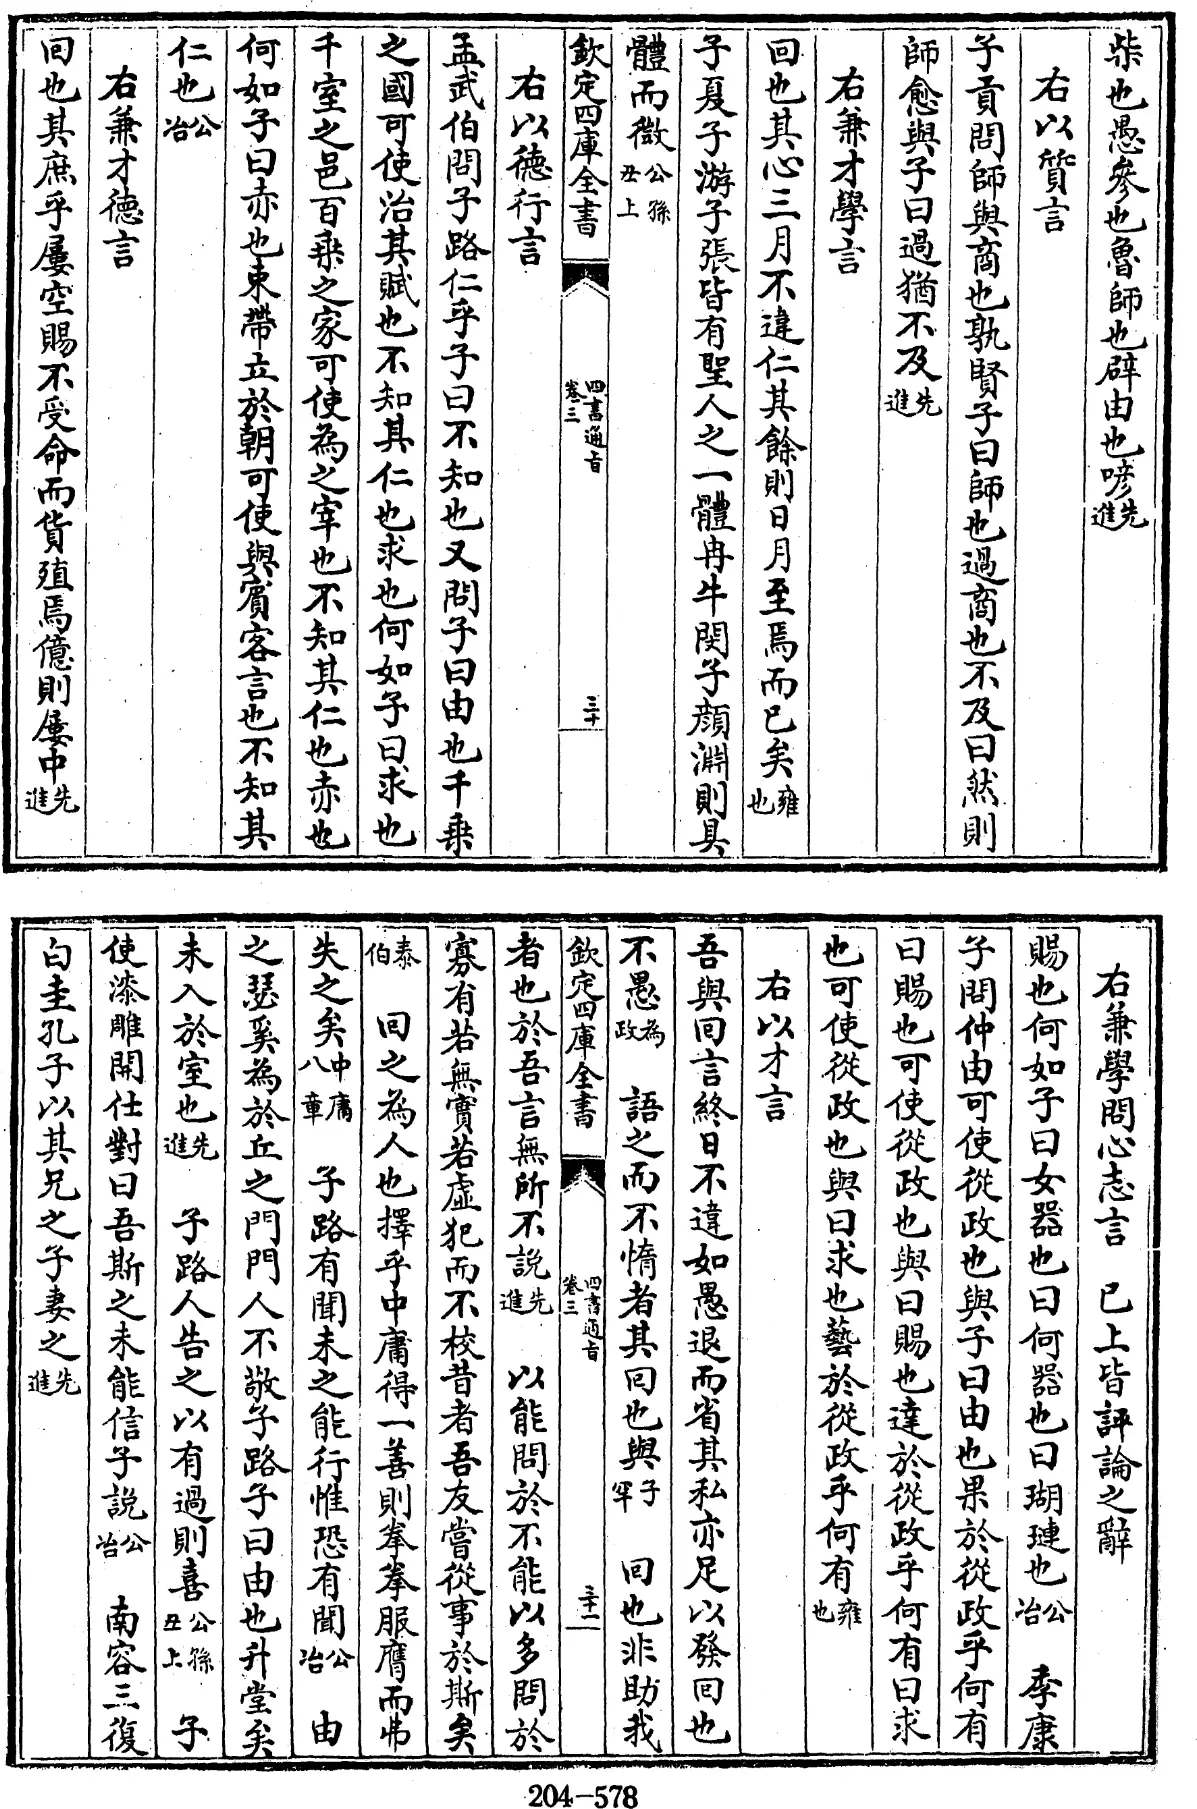 柴也愚參也魯師也辟由也喭先進
右以質言
子貢問師與商也孰賢子曰師也過商也不及曰然則
師愈與子曰過猶不及先進
右兼才學言
回也其心三月不違仁其餘則日月至焉而已矣雍也
子夏子游子張皆有聖人之一體冉牛閔子顔淵則具
體而微公孫丑上
欽定四庫全書
四書通旨
卷三
三十
右以德行言
孟武伯問子路仁乎子曰不知也又問子曰由也千乘
之國可使治其賦也不知其仁也求也何如子曰求也
千室之邑百乘之家可使為之宰也不知其仁也赤也
何如子曰赤也束帶立於朝可使與賓客言也不知其
仁也公冶
右兼才德言
回也其庶乎屢空賜不受命而貨殖焉億則屢中先進
右兼學問心志言　已上皆評論之辭
賜也何如子曰女器也曰何器也曰瑚璉也公冶　季康
子問仲由可使從政也與子曰由也果於從政乎何有
曰賜也可使從政也與曰賜也達於從政乎何有曰求
也可使從政也與曰求也藝於從政乎何有雍也
右以才言
吾與回言終日不違如愚退而省其私亦足以發回也
不愚為政　語之而不惰者其回也與子罕　回也非助我
欽定四庫全書
四書通旨
卷三
三十一
者也於吾言無所不說先進　以能問於不能以多問於
寡有若無實若虛犯而不校昔者吾友嘗從事於斯矣
泰伯　回之為人也擇乎中庸得一善則拳拳服膺而弗
失之矣中庸八章　子路有聞未之能行惟恐有聞公冶　由
之瑟奚為於丘之門門人不敬子路子曰由也升堂矣
未入於室也先進　子路人告之以有過則喜公孫丑上　子
使漆雕開仕對曰吾斯之未能信子說公冶　南容三復
白圭孔子以其兄之子妻之先進
204-578